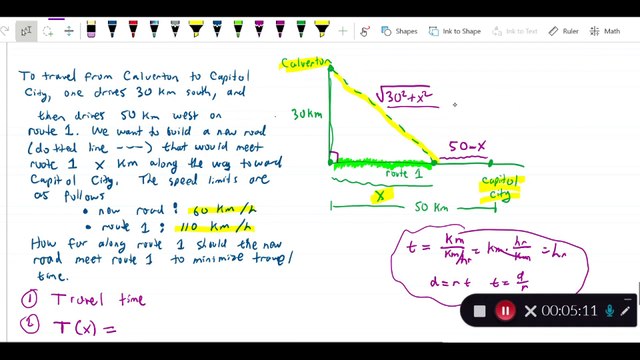 Shapes
Ink to Shape
Ink to Math
To travel from Calverton to Capitol
City, one drives 30 km south, and
then drives 50 km west on
route 1. We want to build a new road
(dotted line ---) that would meet
route 1 x km along the way toward
Capitol City. The speed limits are
as follows
• new road: 60 km/h
• route 1: 110 km/h
How far along route 1 should the new
road meet route 1 to minimize travel
time.
① Travel time
② T(x) =
Calverton
√30²+x²
30km
50-x
route 1
x
capitol
city
50 km
t = km / km/hr = km · hr/km = hr
d=rt t= d/r
00:05:11